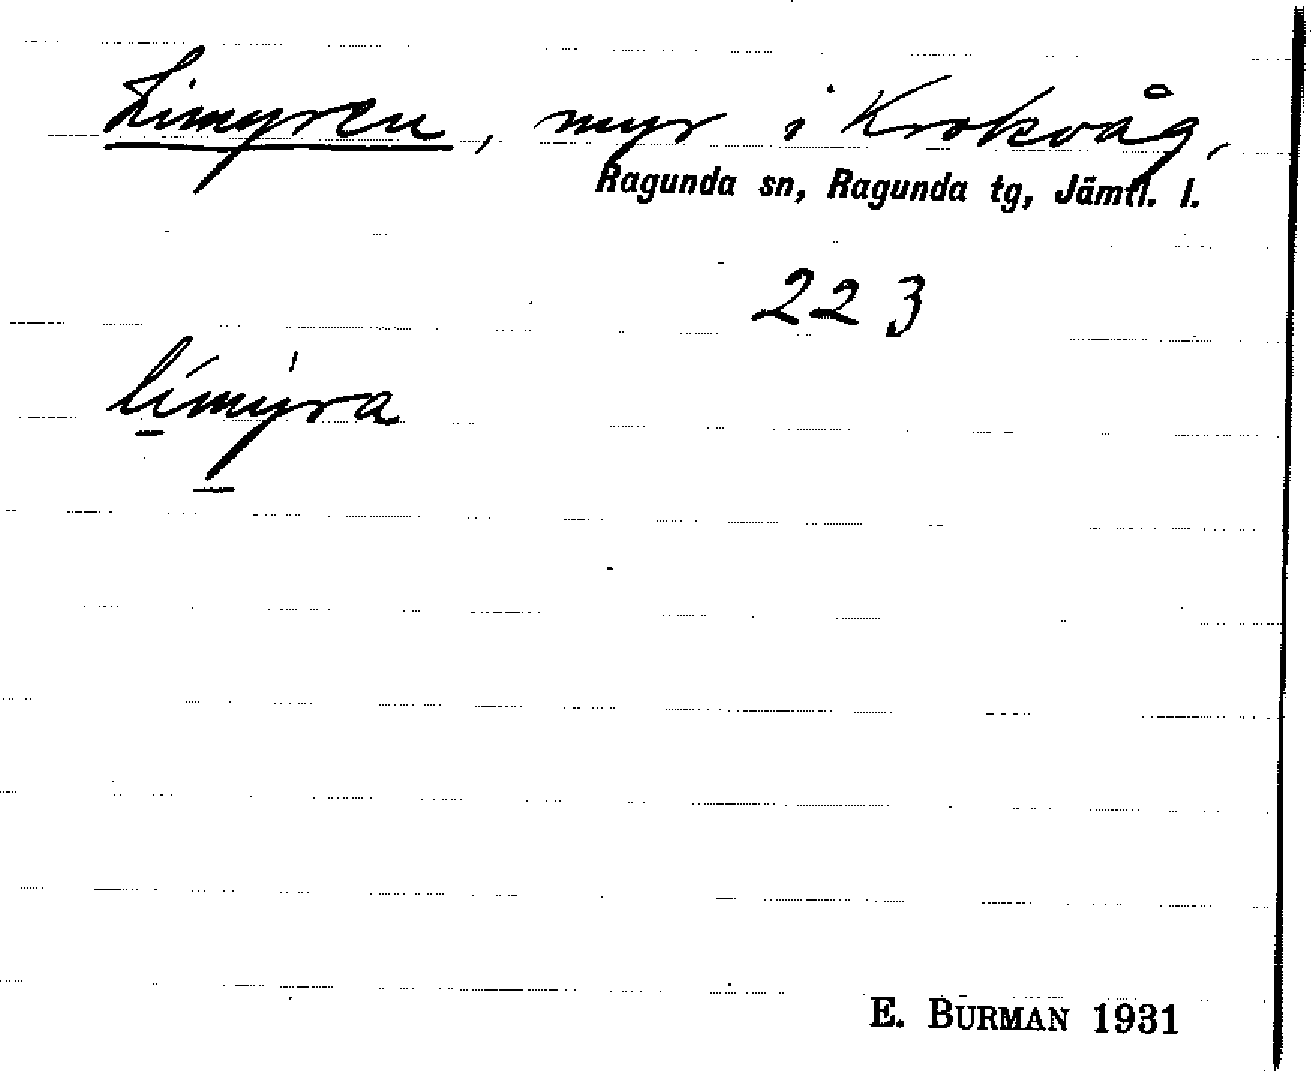 Limyren, myr i Krokvåg,
Ragunda sn, Ragunda tg, Jämtl. l.
223
límýra
E. BURMAN 1931